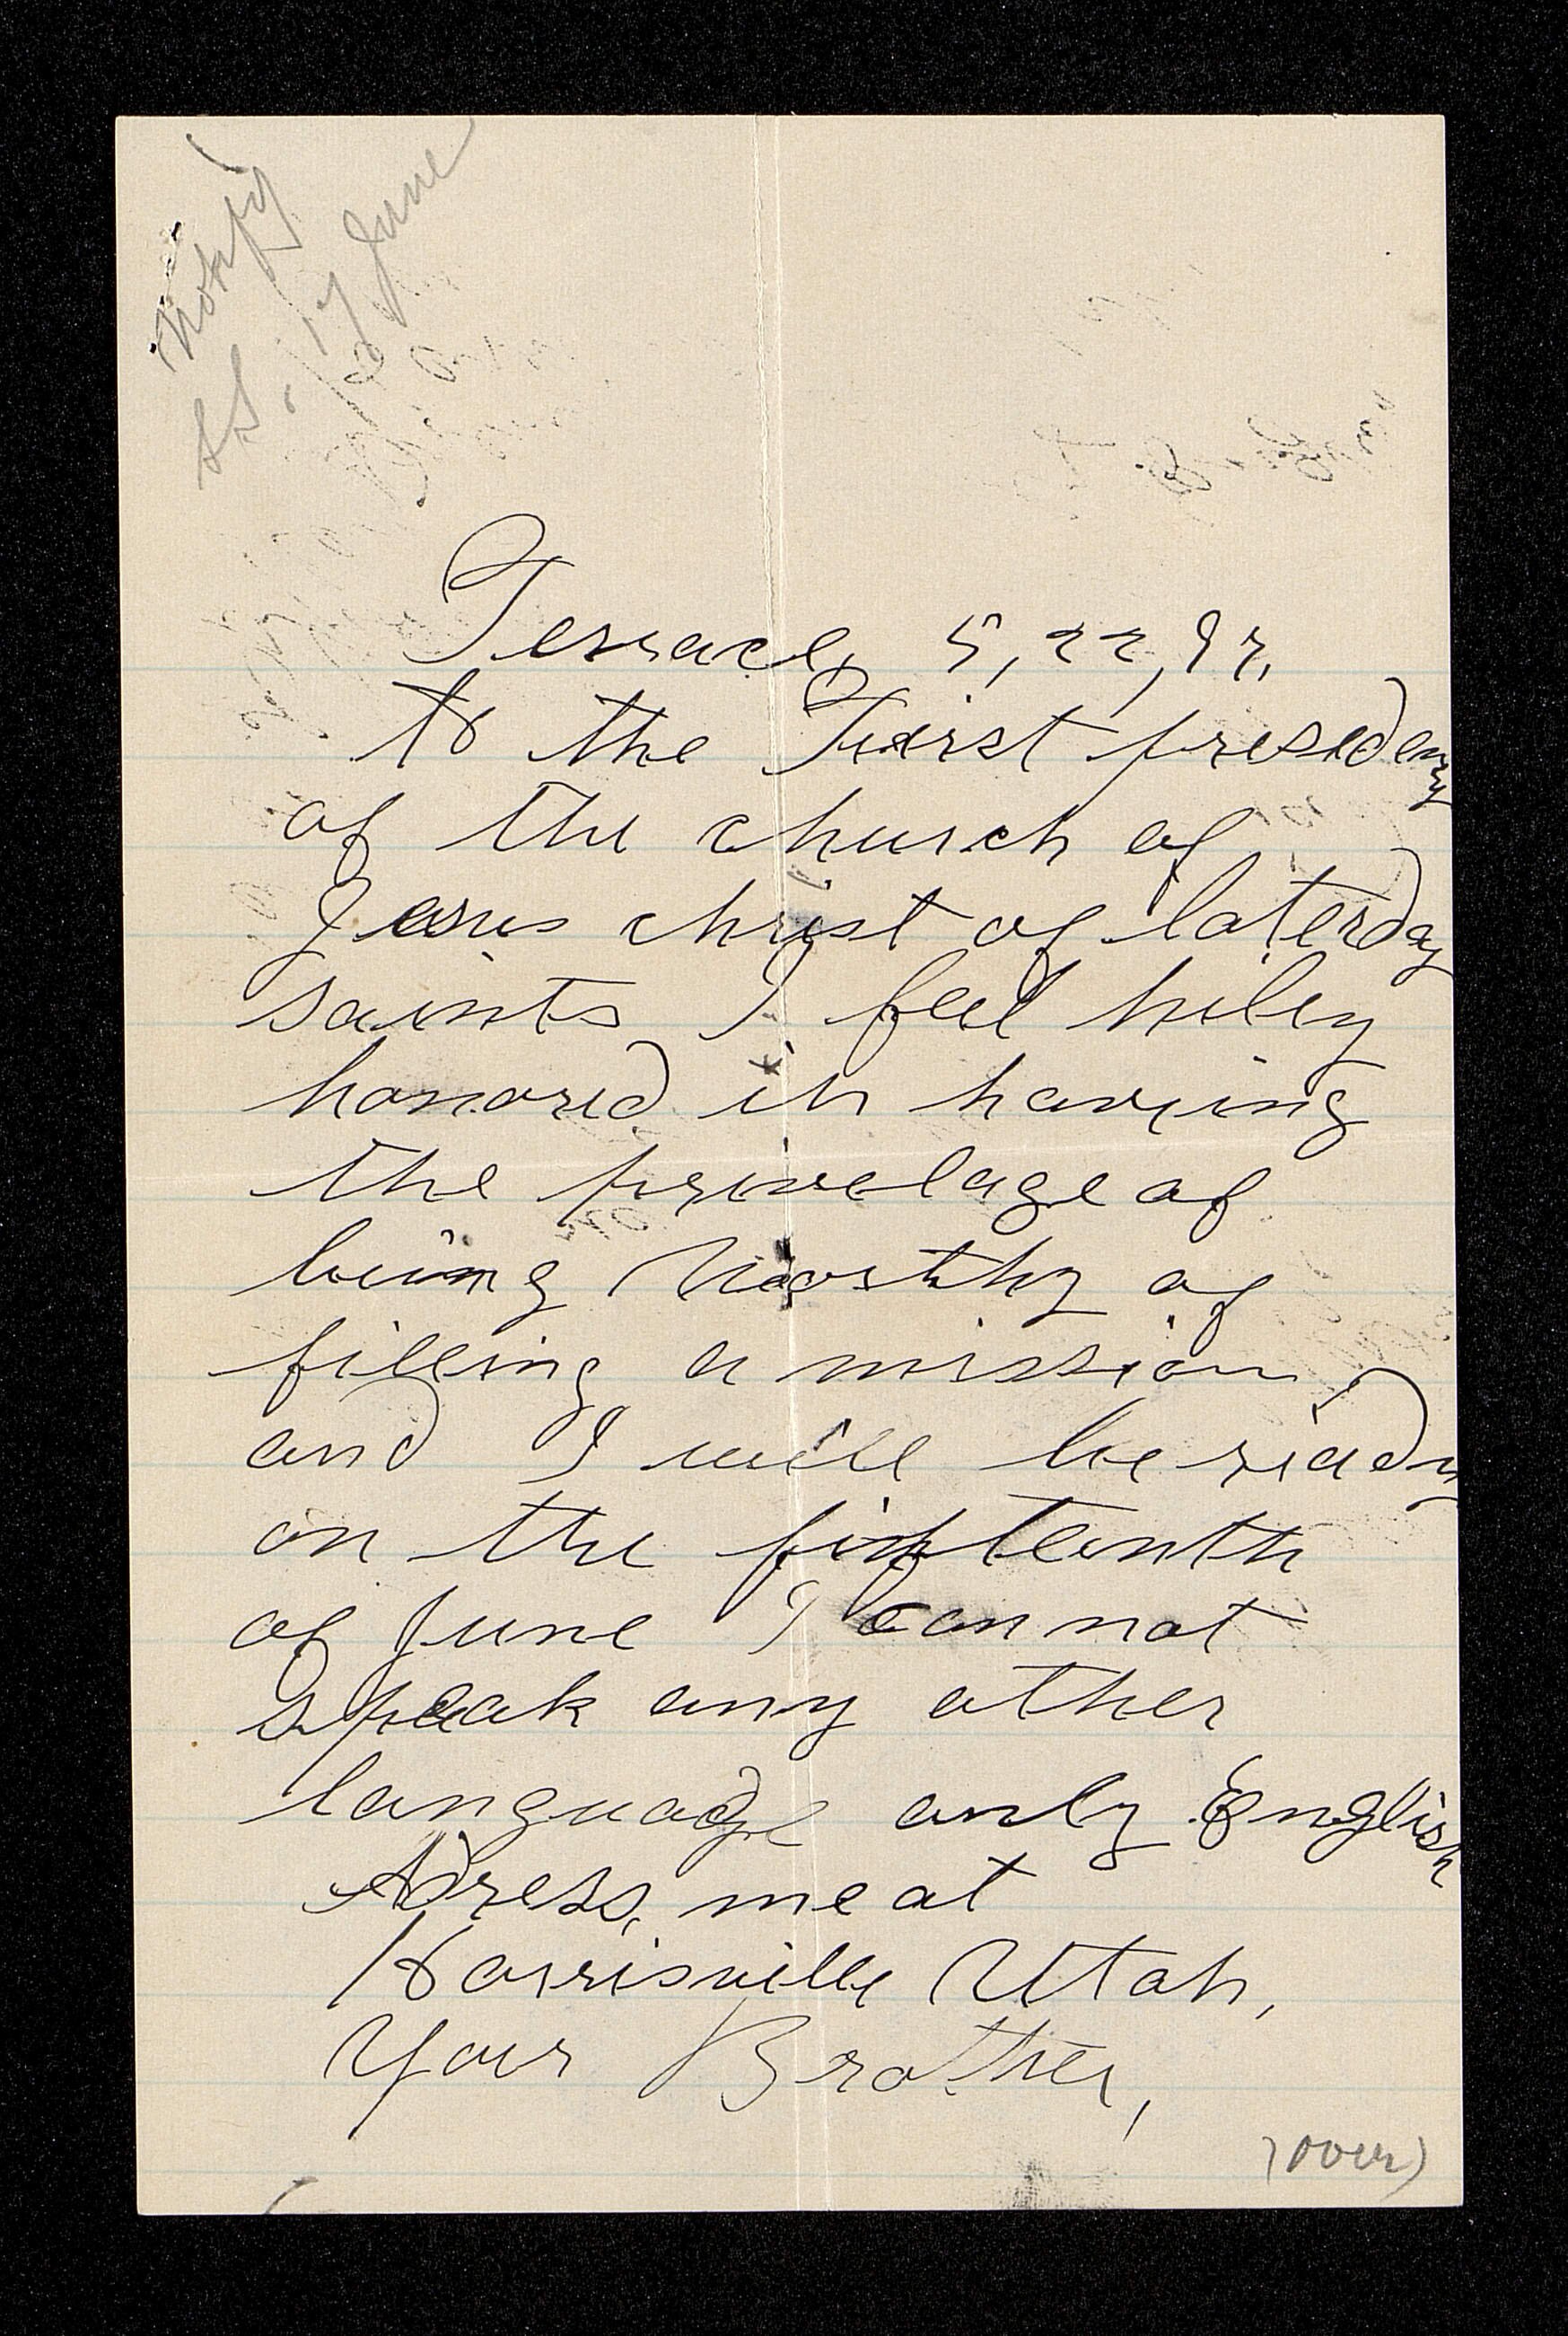 Notify
SS. 17 June
Terrace, 5, 22, 97,
to the First presidency
of the church of
Jesus christ of laterday
saints I feel hiley
honored in having
the privelage of
being Worthy of
filling a mission
and I will be ready
on the fifteenth
of June I cannot
speak any other
language only English
Adress, me at
Harrisville Utah,
Your Brother,
(over)